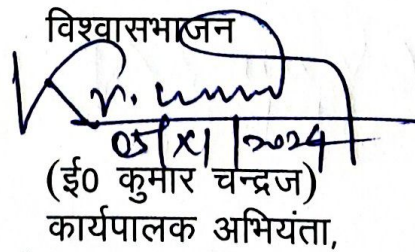 विश्वासभाजन
05/XI/2024
(ई0 कुमार चन्द्रज)
कार्यपालक अभियंता,